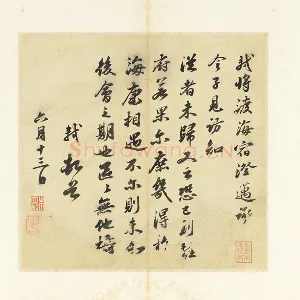 軾將渡海宿澄邁承
令子見訪知
從者未歸又云恐已到桂
府若果尔庶幾得於
海康相遇不尔則未知
後會之期也區區無他禱
軾頓首
六月十三日